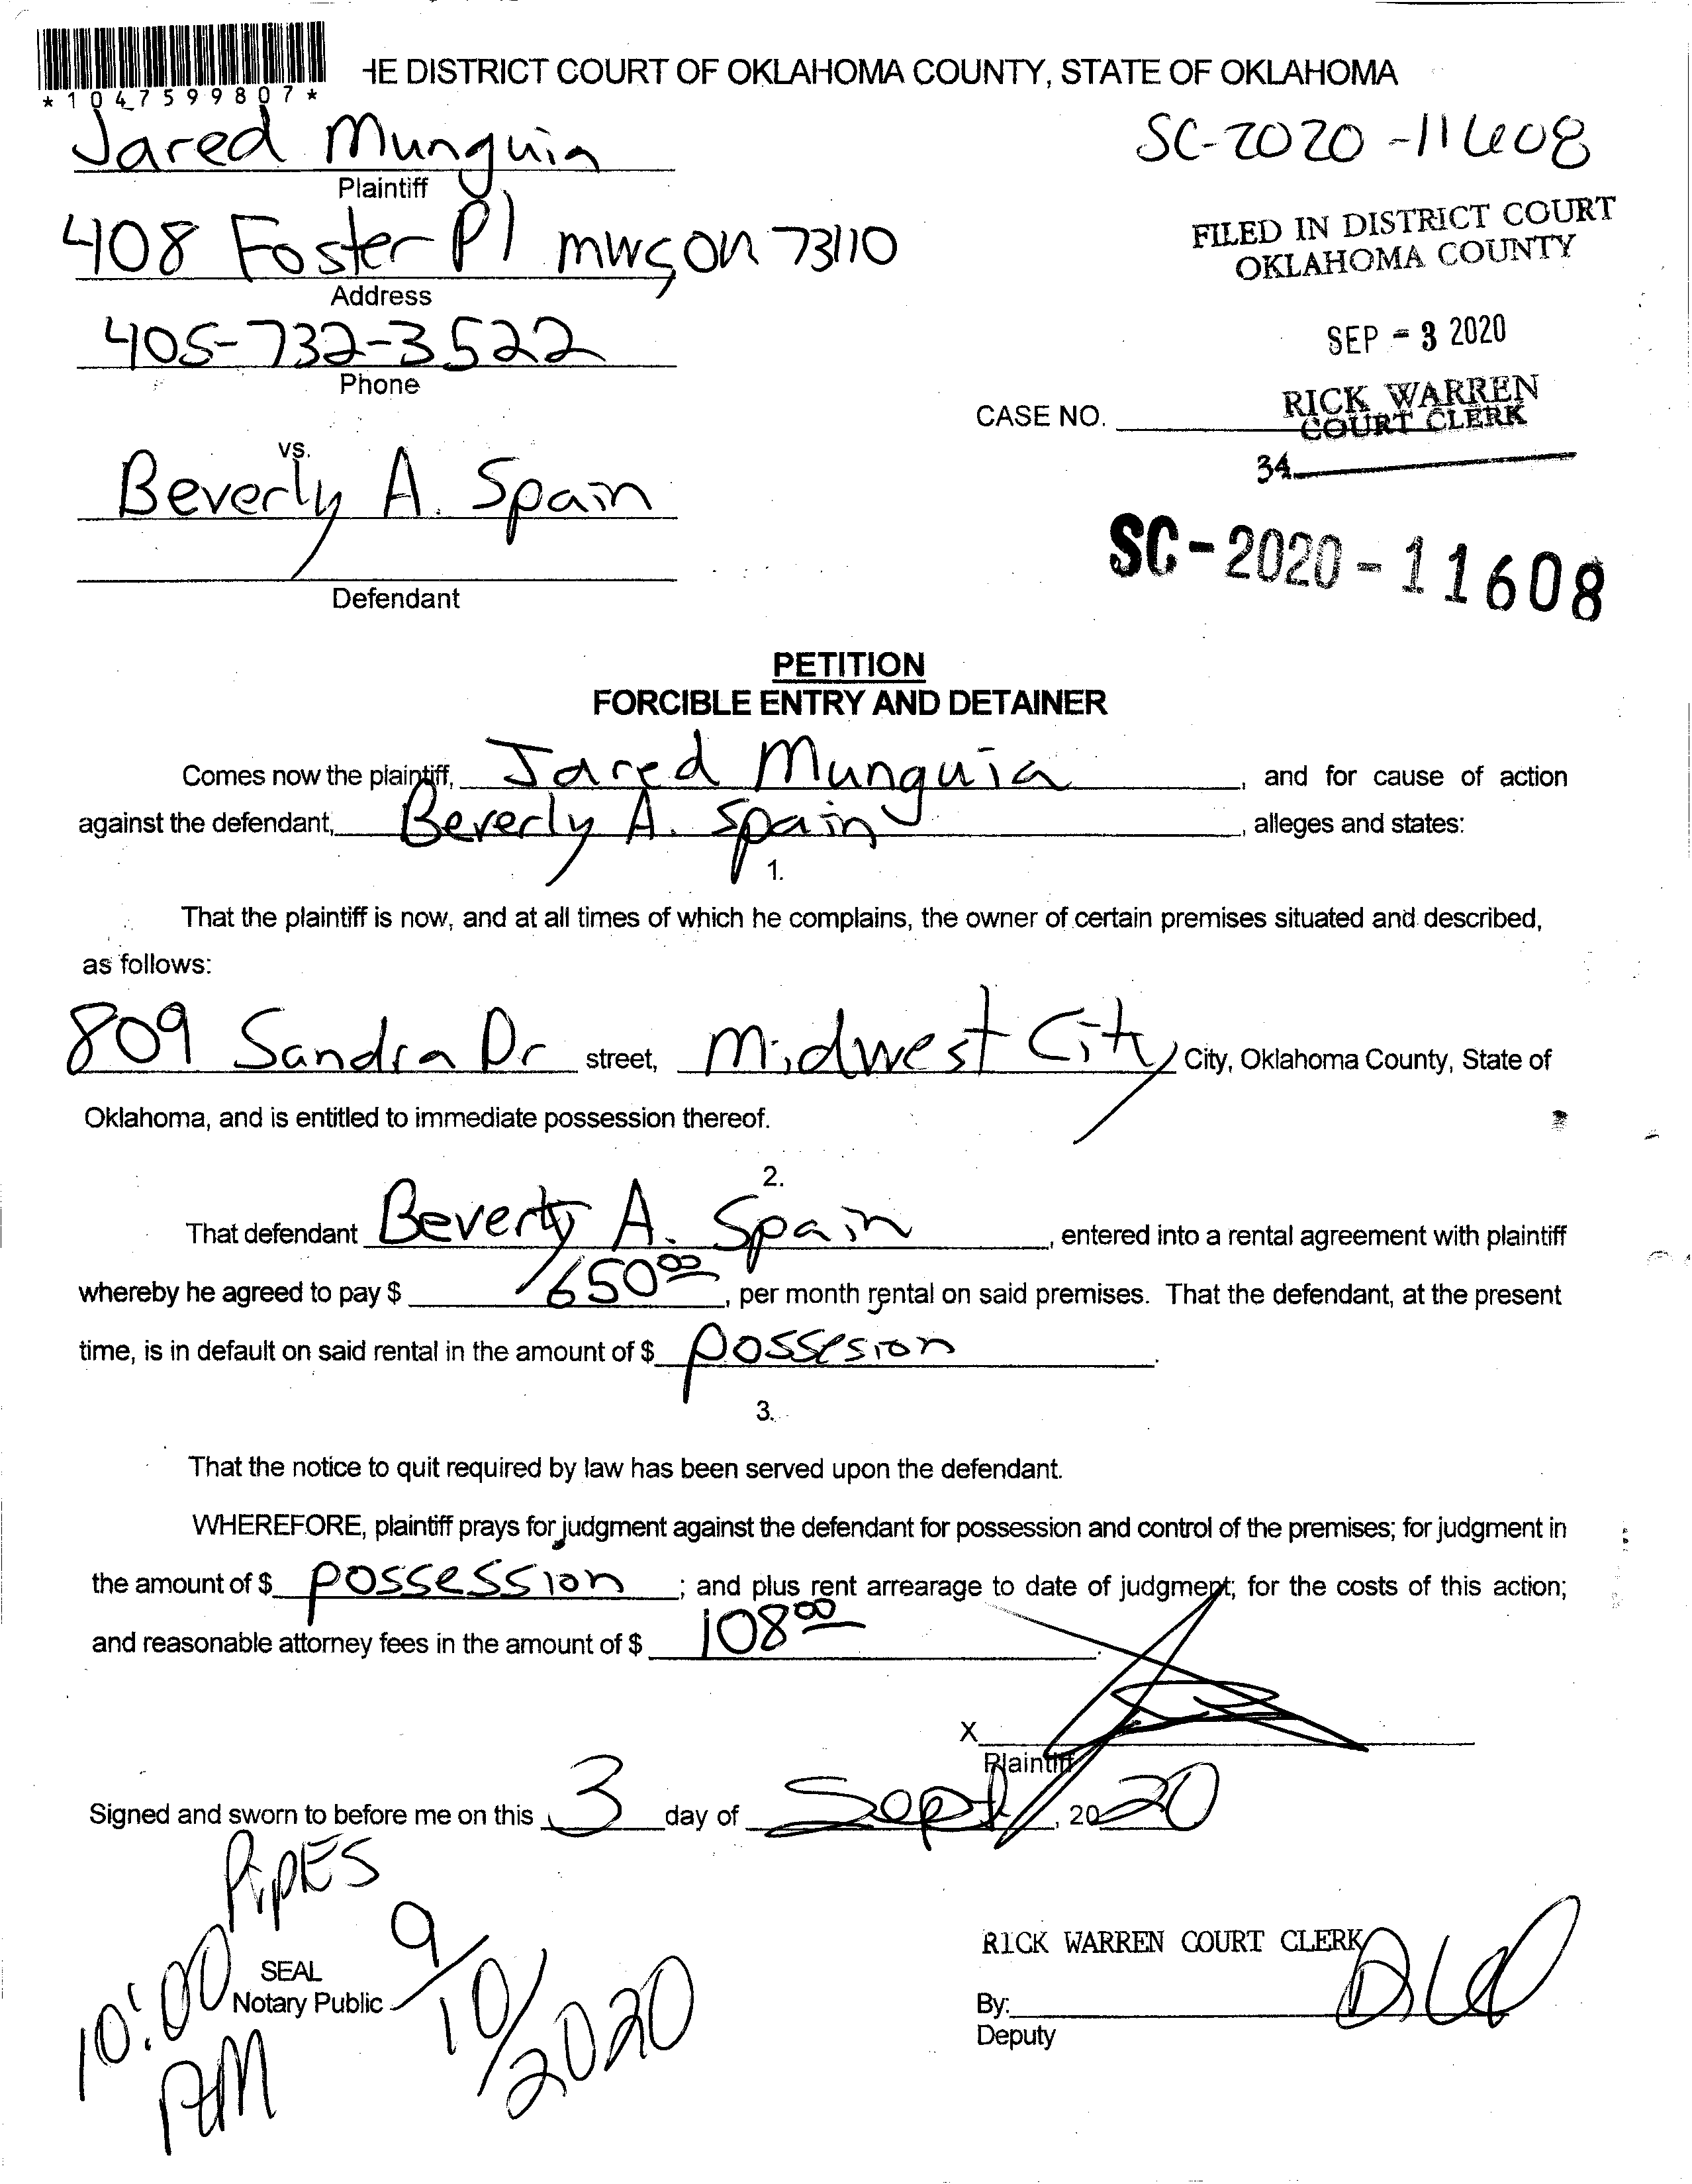 HE DISTRICT COURT OF OKLAHOMA COUNTY, STATE OF OKLAHOMA
*1047599807*
Jared Munguia
SC-2020-11608
Plaintiff
408 Foster Pl MWC OK 73110
FILED IN DISTRICT COURT
OKLAHOMA COUNTY
Address
405-732-3522
SEP - 3 2020
Phone
RICK WARREN
COURT CLERK
CASE NO.
34
vs.
Beverly A. Spain
SC-2020-11608
Defendant
PETITION
FORCIBLE ENTRY AND DETAINER
Comes now the plaintiff, Jared Munguia, and for cause of action
against the defendant, Beverly A. Spain, alleges and states:
1.
That the plaintiff is now, and at all times of which he complains, the owner of certain premises situated and described,
as follows:
809 Sandra Dr street, Midwest City City, Oklahoma County, State of
Oklahoma, and is entitled to immediate possession thereof.
2.
That defendant Beverly A. Spain, entered into a rental agreement with plaintiff
whereby he agreed to pay $ 650.00, per month rental on said premises. That the defendant, at the present
time, is in default on said rental in the amount of $ possesion.
3.
That the notice to quit required by law has been served upon the defendant.
WHEREFORE, plaintiff prays for judgment against the defendant for possession and control of the premises; for judgment in
the amount of $ possession; and plus rent arrearage to date of judgment; for the costs of this action;
and reasonable attorney fees in the amount of $ 108.00.
X
Plaintiff
Signed and sworn to before me on this 3 day of Sept, 20 20
PipES
10:00 AM
9/10/2020
SEAL
Notary Public
RICK WARREN COURT CLERK
By:
Deputy